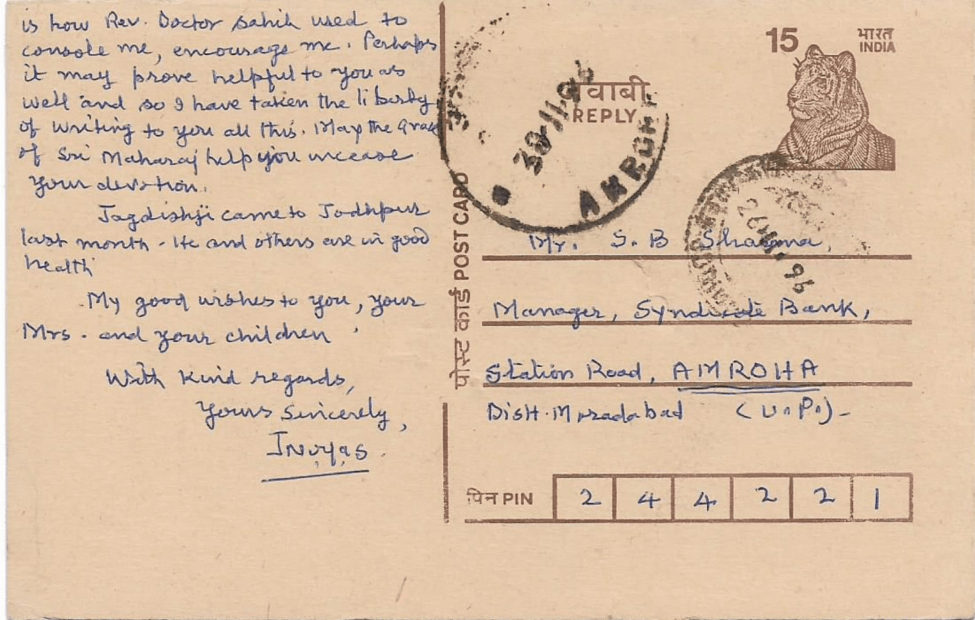 is how Rev. Doctor Sahib used to
console me, encourage me. Perhaps
it may prove helpful to you as
well and so I have taken the liberty
of writing to you all this. May the Grace
of Sri Maharaj help you increase
your devotion.
Jagdishji came to Jodhpur
last month - He and others are in good
health
My good wishes to you, your
Mrs. and your children
With kind regards,
Yours Sincerely,
पोस्ट कार्ड POST CARD
15 भारत
INDIA
जवाबी
REPLY
30-11-96
AMROHA
26 96
Mr. S. B Sharma,
Manager, Syndicate Bank,
Station Road, AMROHA
Distt. Moradabad (U.P.)-
पिन PIN 2 4 4 2 2 1